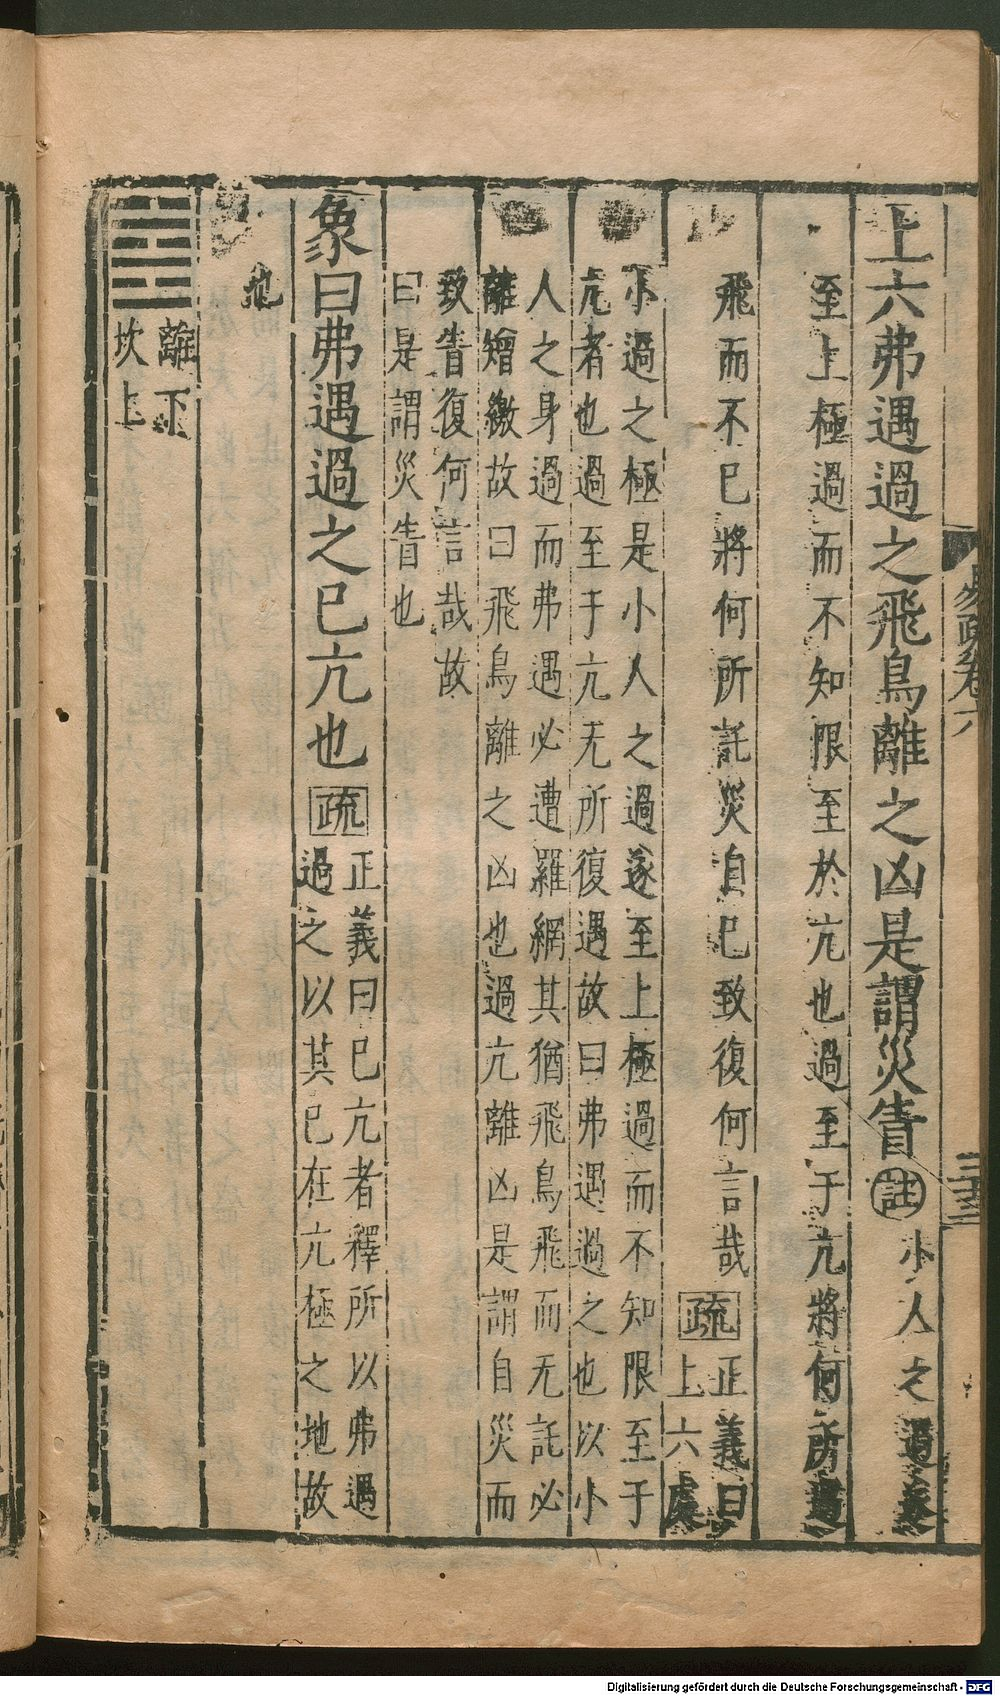 上六弗遇過之飛鳥離之凶是謂災眚註小人之過遂
至上極過而不知限至於亢也過至于亢將何所遇
飛而不已將何所託災自已致復何言哉疏正義曰
上六處
小過之極是小人之過遂至上極過而不知限至于
亢者也過至于亢无所復遇故曰弗遇過之也以小
人之身過而弗遇必遭羅網其猶飛鳥飛而无託必
離矰繳故曰飛鳥離之凶也過亢離凶是謂自災而
致眚復何言哉故
曰是謂災眚也
象曰弗遇過之已亢也疏正義曰已亢者釋所以弗遇
過之以其已在亢極之地故
也
離下
坎上
易疏卷六
三十三
Digitalisierung gefördert durch die Deutsche Forschungsgemeinschaft - DFG